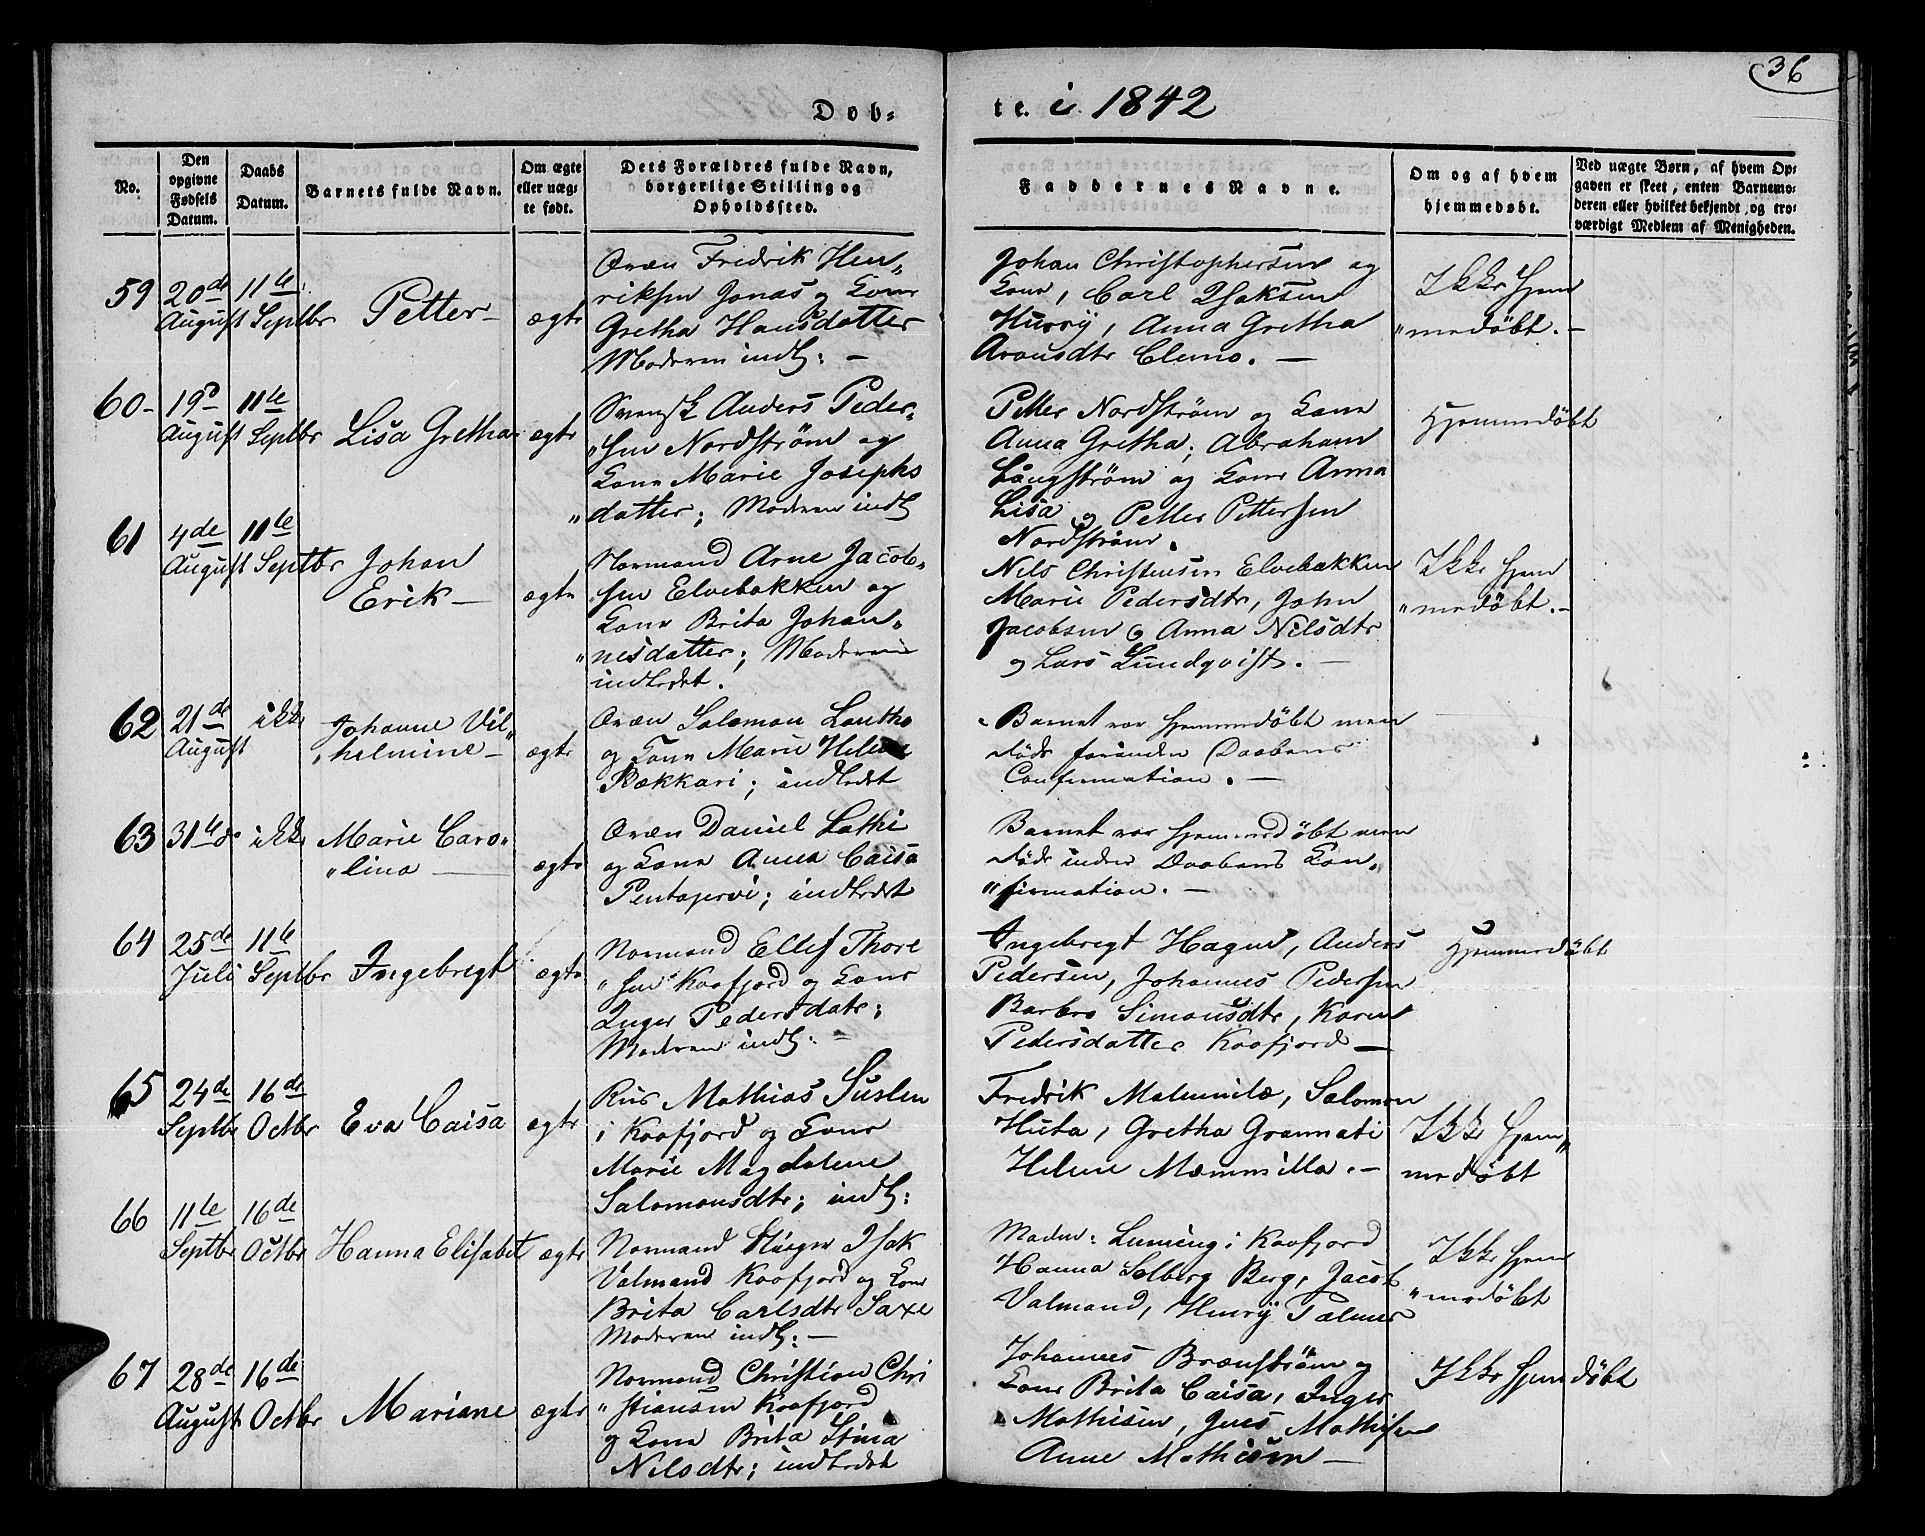 36
Døb-
te. i 1842
No.
Den
opgivne
Fødsels
Datum.
Daabs
Datum.
Barnets fulde Navn.
Om ægte
eller uæg-
te født.
Dets Forældres fulde Navn,
borgerlige Stilling og
Opholdssted.
Faddernes Navne.
Om og af hvem
hjemmedøbt.
Ved uægte Børn, af hvem Op-
gaven er skeet, enten Barnemo-
deren eller hvilket bekjendt, og tro-
værdigt Medlem af Menigheden.
59
20de
August
11te
Septbr
Petter
ægte
Qvæn Fredrik Hen„
riksen Jonas og Kone
Gretha Hansdatter
Moderen indl: —
Johan Christophersen og
Kone, Carl Isaksen
Hurry, Anna Gretha
Aronsdtr Clemo. —
Ikke hjem
„medøbt. —
60-
19d
August
11te
Septbr
Lisa Gretha
ægte
Svensk Anders Peder„
„sen Nordstrøm og
Kone Marie Josephs
„datter; Moderen indl
Petter Nordstrøm og Kone
Anna Gretha; Abraham
Långstrøm og Kone Anna
Lisa og Petter Pettersen
Nordstrøm.
Hjemmedøbt
61
4de
August
11te
Septbr
Johan
Erik —
ægte
Normand Arne Jacob„
sen Elvebakken og
Kone Brita Johan„
„nesdatter; Moderen
indledet.
Nils Christensen Elvebakken
Marie Pedersdtr, John
Jacobsen & Anna Nilsdtr
og Lars Lundqvist. —
Ikke hjem
„medøbt. —
62
21de
August
ikke
Johanne Vil„
„helmine —
ægte
Qvæn Salomon Lantho
og Kone Marie Helene
Bækkari; indledet
Barnet var hjemmedøbt men
døde forinden Daabens
Confirmation. —
63
31te do
ikke
Marie Caro„
„lina —
ægte
Qvæn Daniel Lathi
og Kone Anna Caisa
Pentajervi; indledet
Barnet var hjemmedøbt men
døde inden Daabens Con„
„firmation. —
64
25de
Juli
11te
Septbr
Ingebregt
ægte
Normand Ellef Thore
„sen Kaafjord og Kone
Inger Pedersdatr;
Moderen indl: —
Ingebregt Hagen, Anders
Pedersen, Johannes Pedersen
Barbro Simonsdtr, Karen
Pedersdatter Kaafjord —
Hjemmedøbt
65
24de
Septbr
16de
Octbr
Eva Caisa
ægte
Mathias Suslen
i Kaafjord og Kone
Marie Magdalene
Salomonsdtr; indl:
Fredrik Salomon
Huta, Gretha Grannati
Helene Mæmmilla. —
Ikke hjem„
medøbt
66
11te
Septbr
16de
Octbr
Hanna Elisabet
ægte
Normand Isak
Valmand Kaafjord og Kone
Brita Carlsdtr Saxe
Moderen indl: —
Madm: i Kaafjord
Hanna Solberg Berg, Jacob
Valmand, Henry Palmer
Ikke hjem
„medøbt
67
28de
August
16de
Octbr
Mariane
ægte
Normand Christian Chri
„stiansen Kaafjord
og Kone Brita Stina
Nilsdtr; indledet
Johannes Brænstrøm og
Kone Brita Caisa, Inger
Mathisen, Jens Mathisen
Anne Mathisen —
Ikke hjemmedøbt